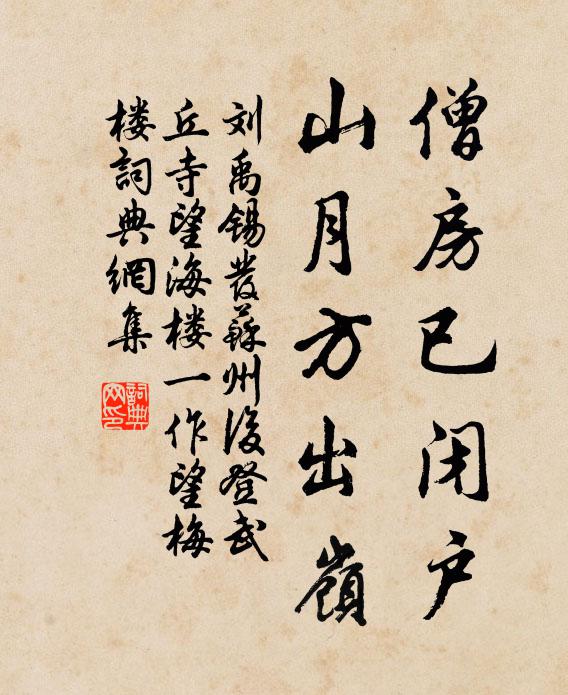 僧房已闭户
山月方出嶺
刘禹锡發蘇州後登武
丘寺望海楼一作望梅
楼詞典網集
詞典网印